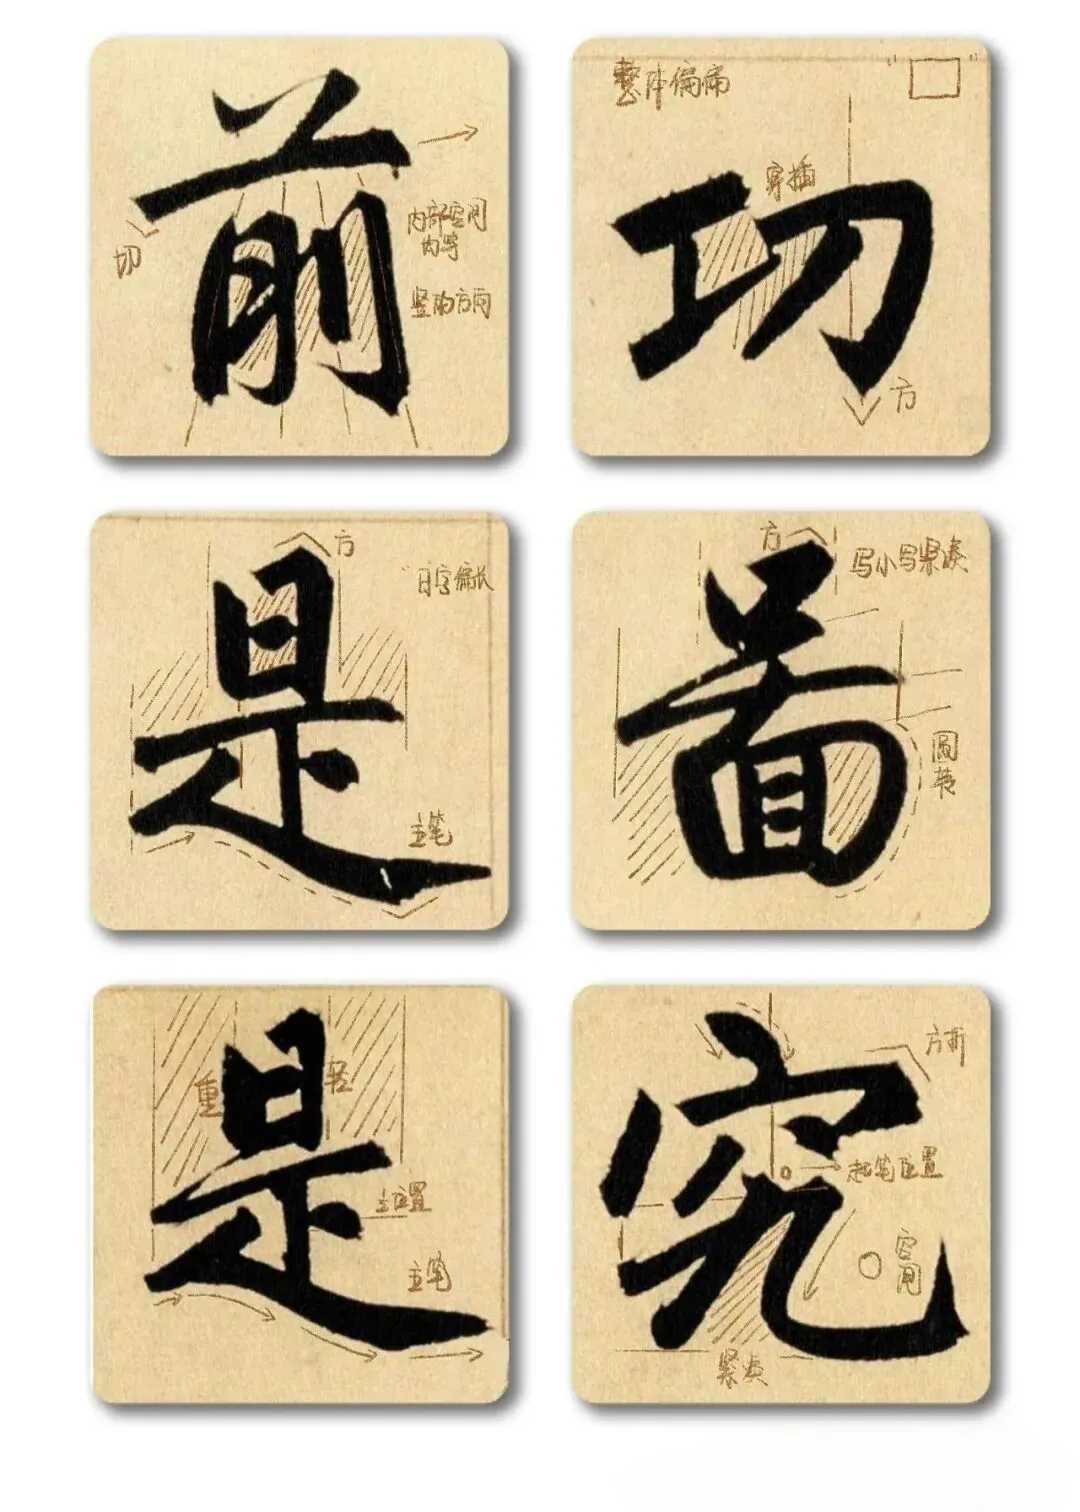 前
切
内部空间
内守
竖的方向
功
整体偏扁
穿插
方
是
方
日字偏长
主笔
啚
方
写小写紧凑
圆转
是
重
轻
主笔
究
方折
起笔位置
空间
紧凑